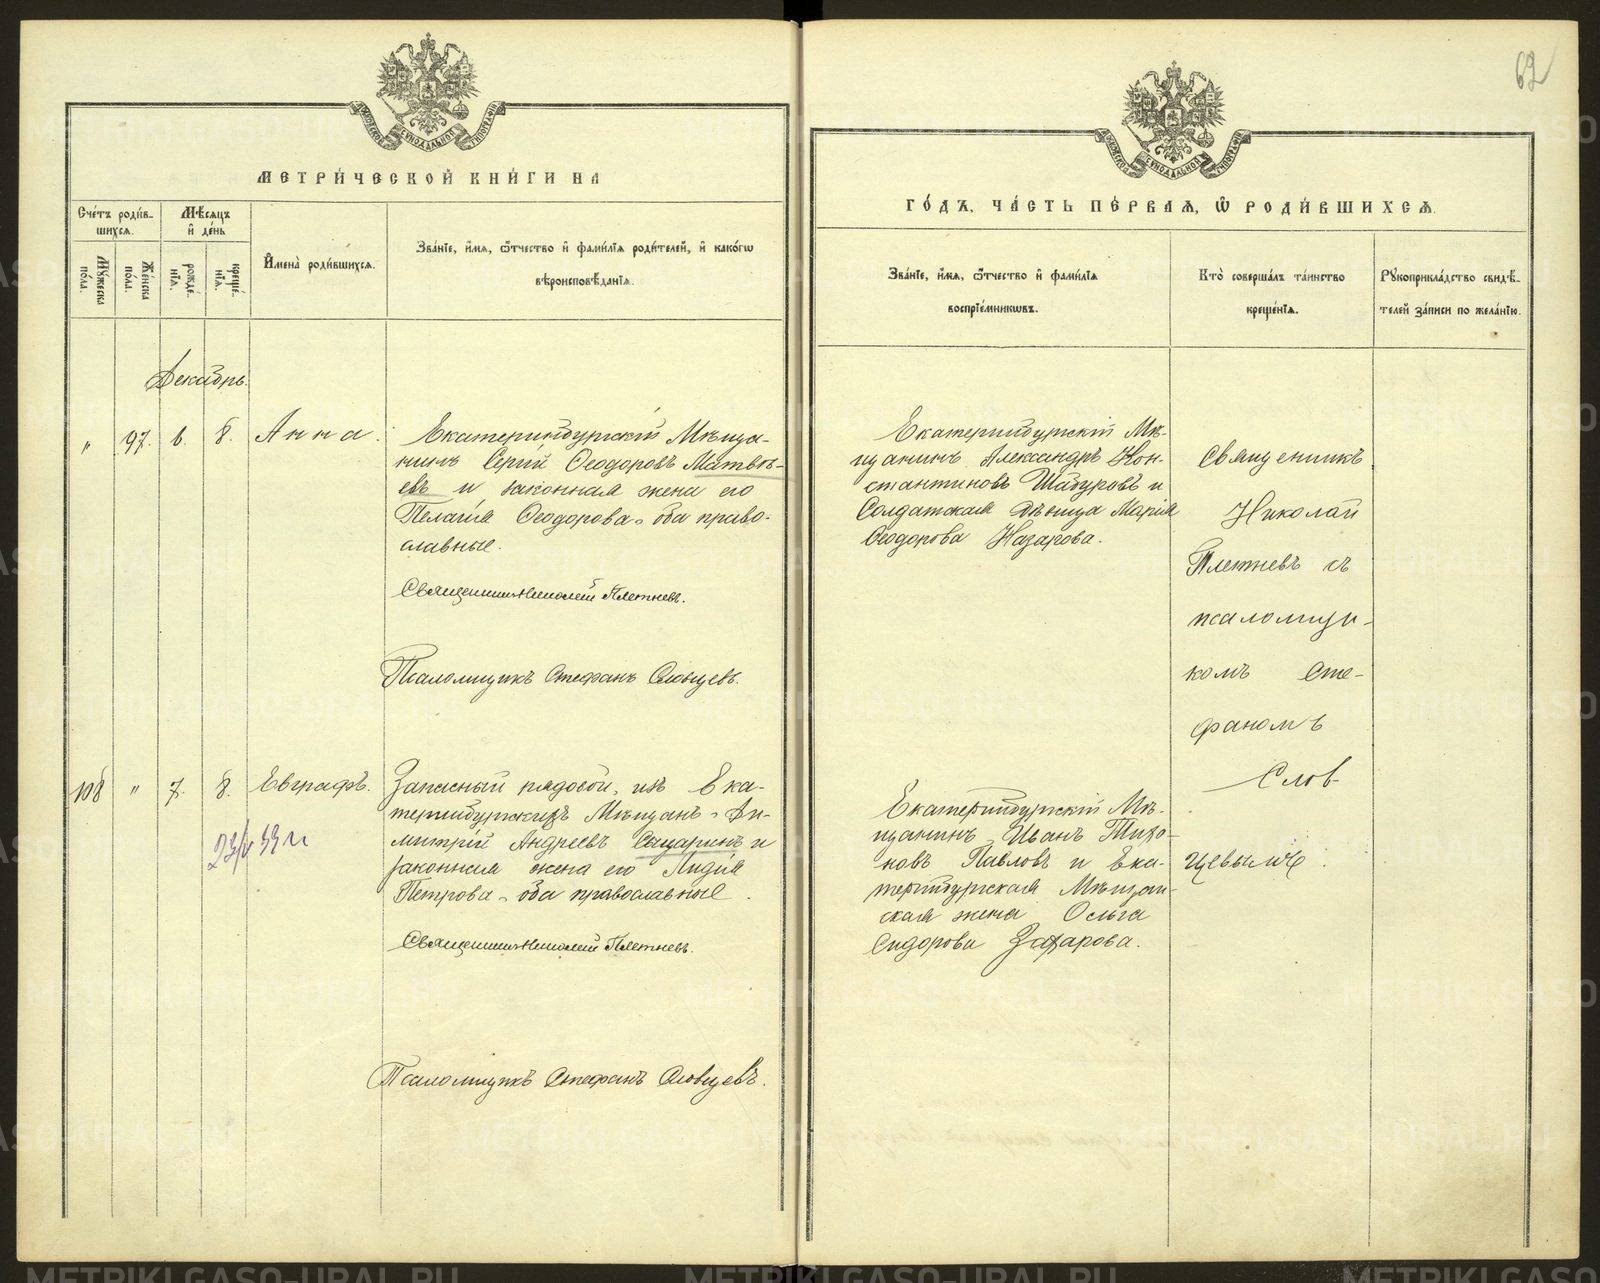 62
МОСКОВСКОЙ СѴНОДАЛЬНОЙ ТИПОГРАФІИ
МОСКОВСКОЙ СѴНОДАЛЬНОЙ ТИПОГРАФІИ
МЕТРИ́ЧЕСКОЙ КНИ́ГИ НА
ГО́ДЪ, ЧА́СТЬ ПЕ́РВАѦ, Ѽ РОДИ́ВШИХСѦ.
Сче́тъ роди́в-
шихсѧ.
Мѣ́сѧцъ
и҆ де́нь
Мꙋ́жеска
по́ла.
Же́нска
по́ла.
рожде́-
нїѧ.
креще́-
нїѧ.
И҆мена̀ роди́вшихсѧ.
Зва́нїе, и҆́мѧ, ѻ҆́тчество и҆ фами́лїѧ роди́телей, и҆ како́гѡ
вѣроисповѣ́данїѧ.
Зва́нїе, и҆́мѧ, ѻ҆́тчество и҆ фами́лїѧ
воспрїе́мникѡвъ.
Кто̀ соверша́лъ та́инство
креще́нїѧ.
Рꙋкоприкла́дство свидѣ́-
телей за́писи по жела́нїю.
Декабрь.
" 97. 6. 8. Анна.
Екатеринбургскій Мѣща-
нинъ Сергій Ѳеодоровъ Матвѣ-
евъ и законная жена его
Пелагія Ѳеодорова, оба право-
славные.
Священникъ Николай Плетневъ.
Псаломщикъ Стефанъ Словцевъ.
Екатеринбургскій Мѣ-
щанинъ Александръ Кон-
стантиновъ Шабуровъ и
Солдатская дѣвица Марія
Ѳеодорова Назарова.
Священникъ
Николай
Плетневъ съ
псаломщи-
комъ Сте-
фаномъ
Слов-
цевымъ.
108 " 7. 8. Евграфъ.
Запасный рядовой, изъ Ека-
теринбургскихъ Мѣщанъ, Ди-
митрій Андреевъ Сацаринъ и
законная жена его Лидія
Петрова, оба православные.
Священникъ Николай Плетневъ.
Псаломщикъ Стефанъ Словцевъ.
Екатеринбургскій Мѣ-
щанинъ Иванъ Тихо-
новъ Павловъ и Ека-
теринбургская Мѣщан-
ская жена Ольга
Сидорова Захарова.
METRIKI.GASO-URAL.RU